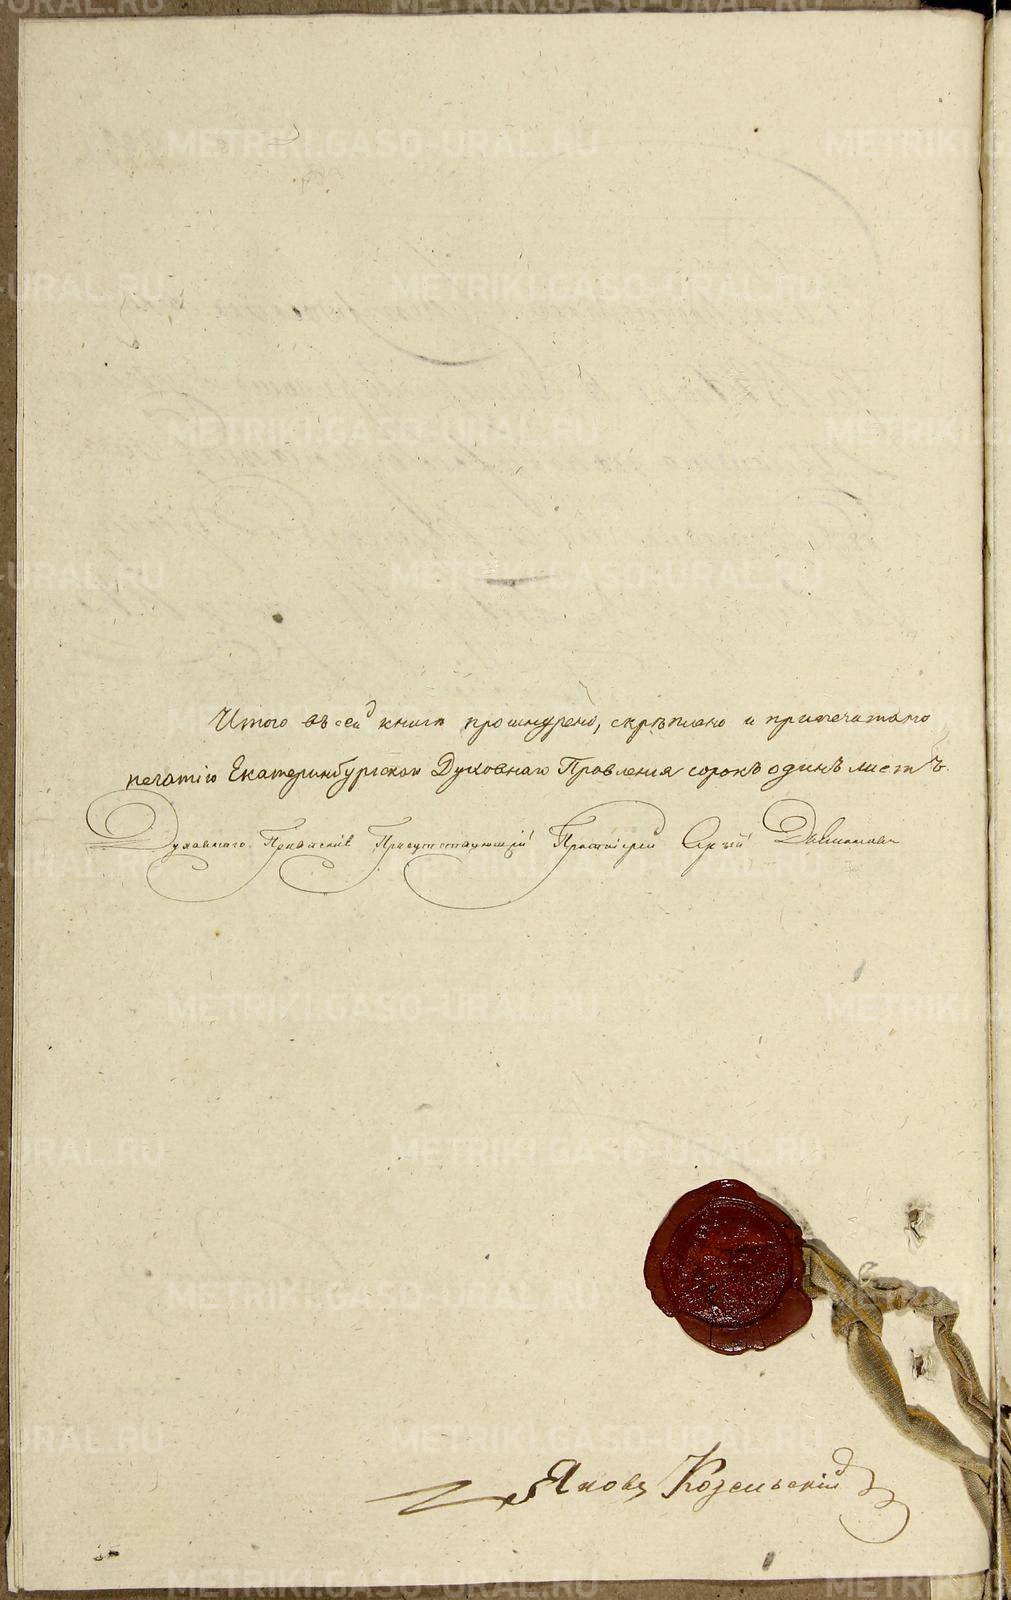 Итого въ сей книгѣ прошнурено, скрѣплено и припечатано
печатію Екатеринбургскаго Духовнаго Правленія сорокъ одинъ листъ.
Духовнаго Правленія Присутствующій Протоіерей
Яковъ Козельскій
METRIKI.GASO-URAL.RU